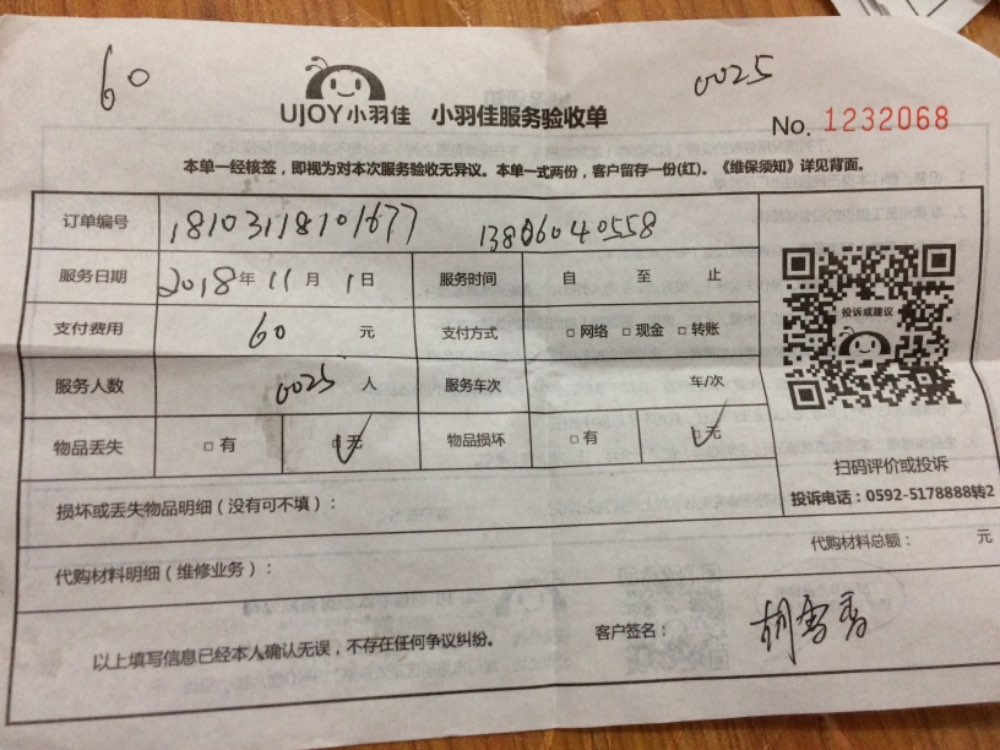 60
0025
UJOY小羽佳 小羽佳服务验收单
No. 1232068
本单一经核签，即视为对本次服务验收无异议。本单一式两份，客户留存一份(红)。《维保须知》详见背面。
订单编号 18103118101677 13806040558
服务日期 2018年 11月 1日 服务时间 自 至 止
投诉或建议
支付费用 60 元 支付方式 □网络 □现金 □转账
服务人数 0025 人 服务车次 车/次
物品丢失 □有 □无 物品损坏 □有 □无
扫码评价或投诉
投诉电话：0592-5178888转2
损坏或丢失物品明细（没有可不填）：
代购材料明细（维修业务）： 代购材料总额： 元
以上填写信息已经本人确认无误，不存在任何争议纠纷。 客户签名： 胡雪香